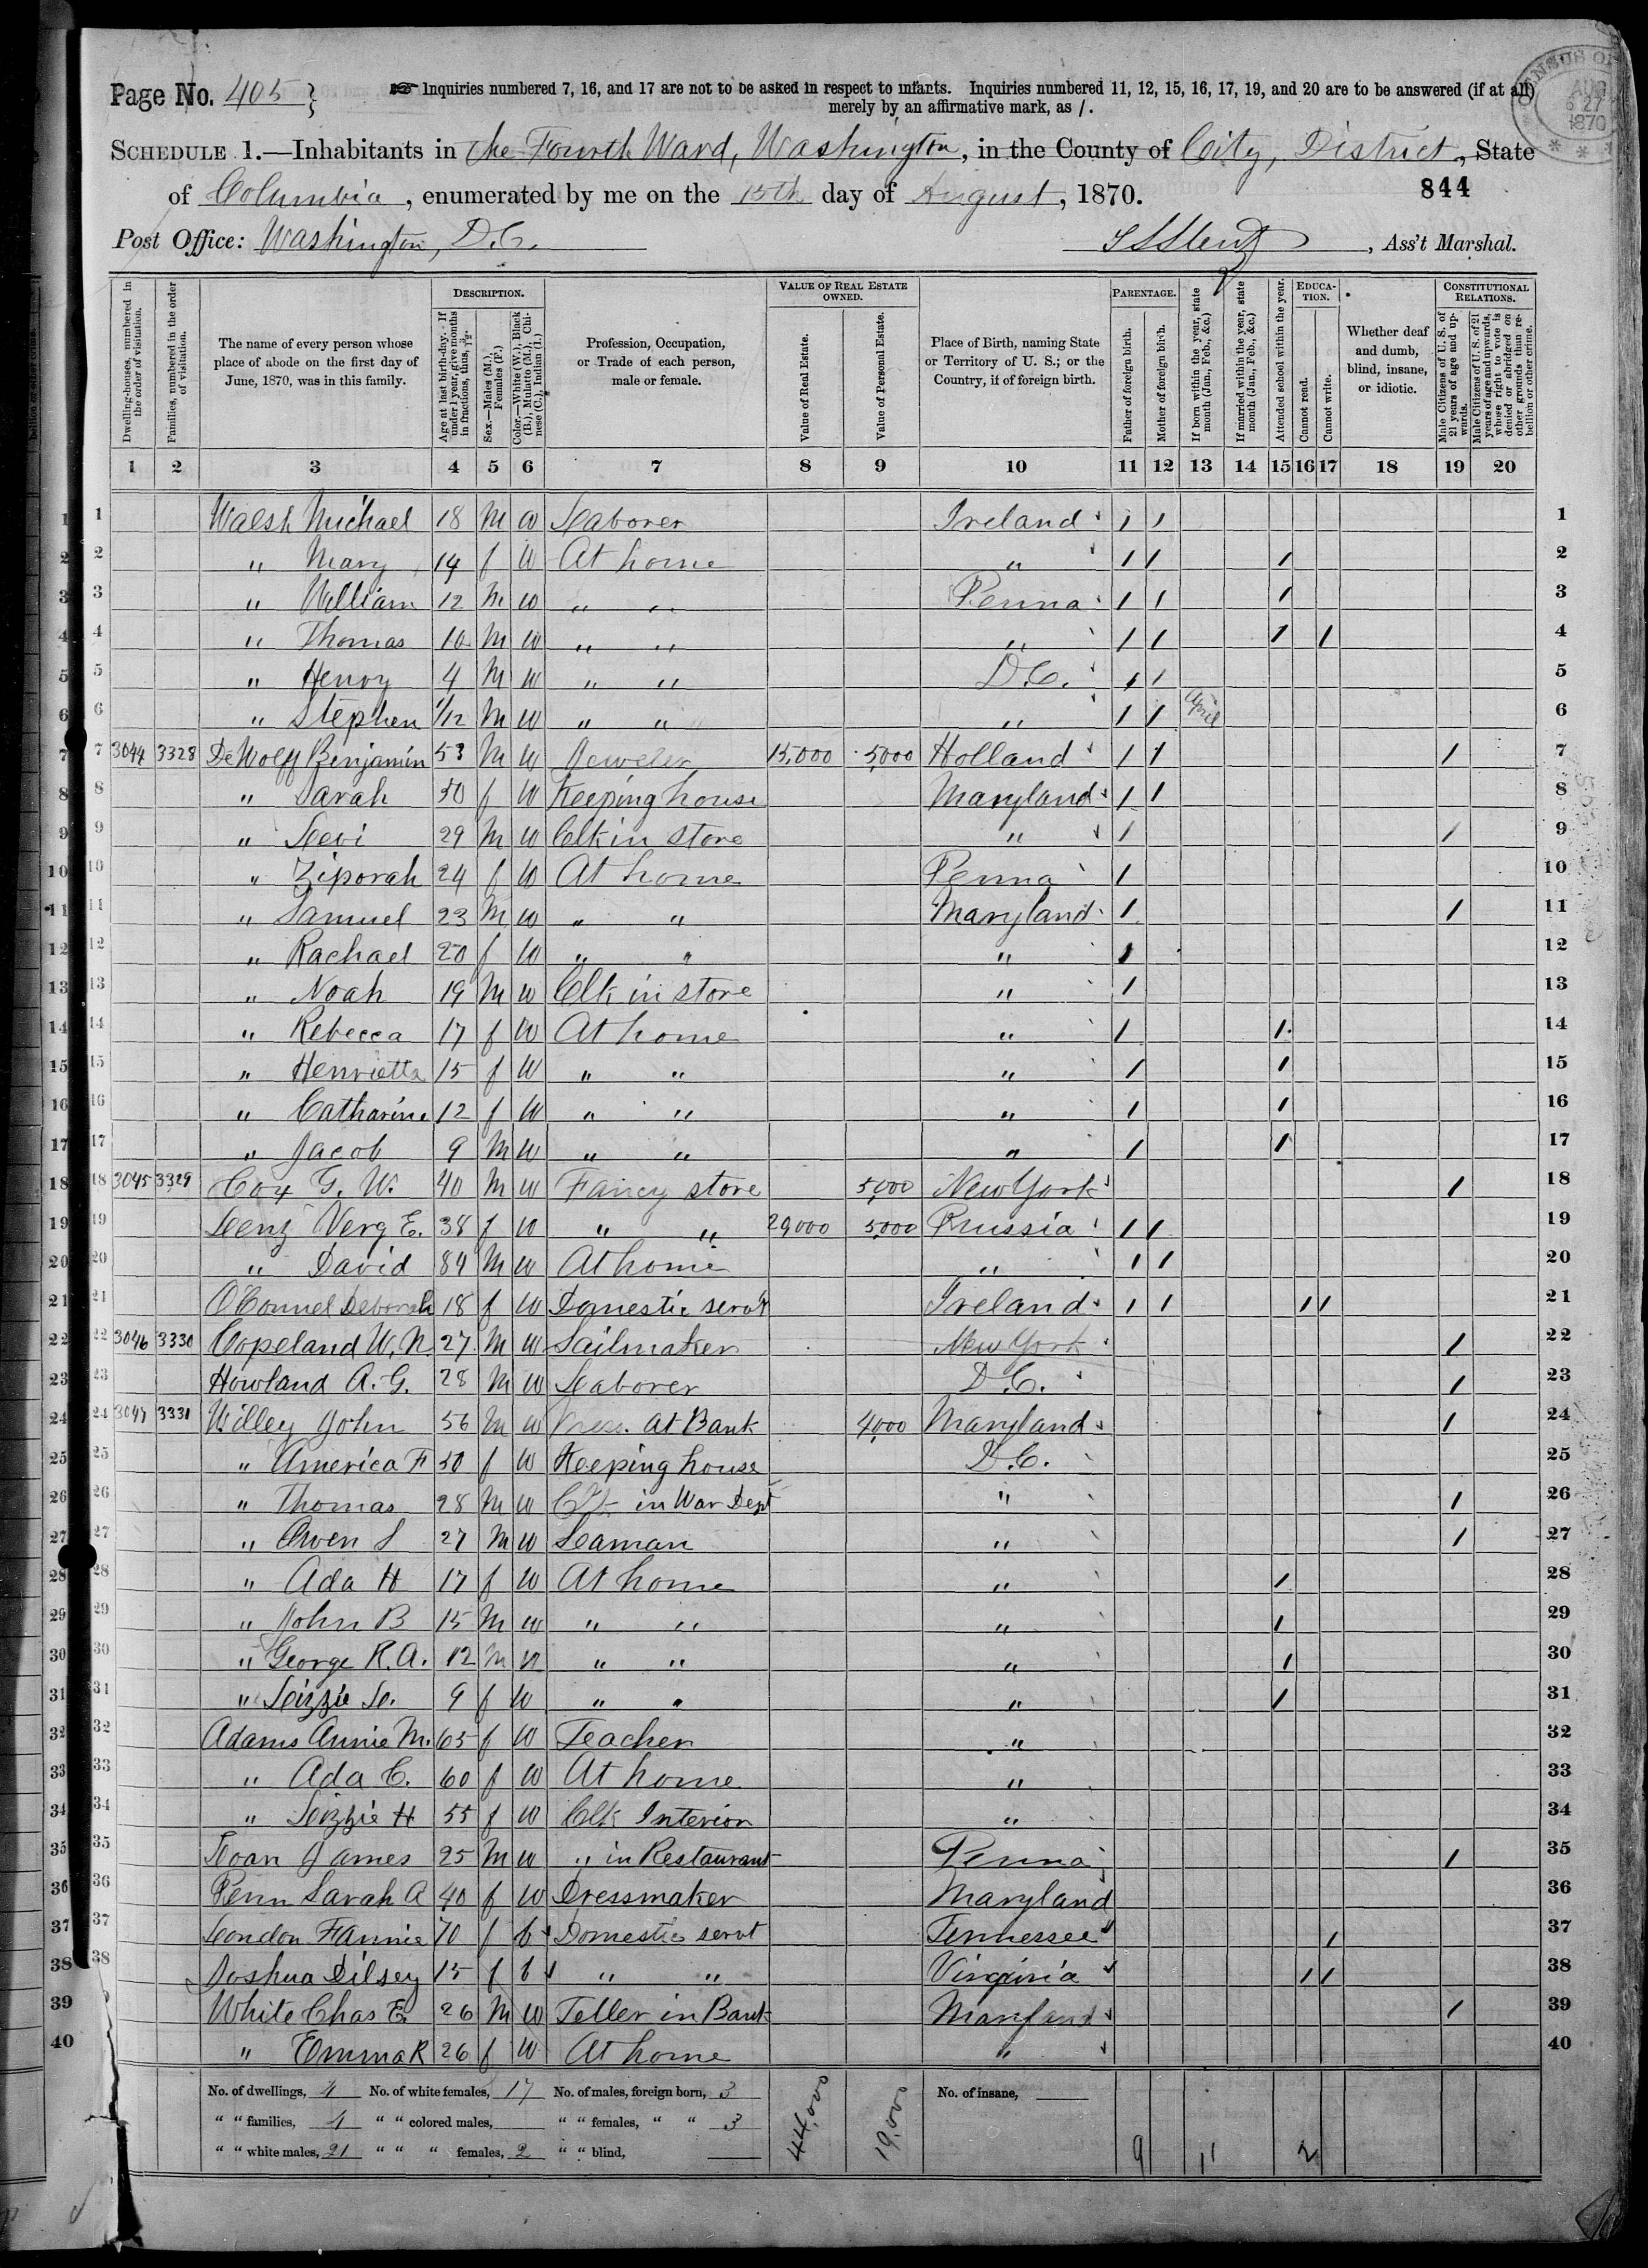 Page No. 405 } Inquiries numbered 7, 16, and 17 are not to be asked in respect to infants. Inquiries numbered 11, 12, 15, 16, 17, 19, and 20 are to be answered (if at all)
merely by an affirmative mark, as /.
CENSUS OF
AUG
27
1870
SCHEDULE 1.—Inhabitants in the Fourth Ward, Washington, in the County of City, District, State
of Columbia, enumerated by me on the 15th day of August, 1870.
844
Post Office: Washington, D.C. , Ass't Marshal.
Dwelling-houses, numbered in the order of visitation.
Families, numbered in the order of visitation.
The name of every person whose place of abode on the first day of June, 1870, was in this family.
DESCRIPTION.
Age at last birth-day. If under 1 year, give months in fractions, thus, 3/12.
Sex.—Males (M.), Females (F.)
Color.—White (W.), Black (B.), Mulatto (M.), Chinese (C.), Indian (I.)
Profession, Occupation, or Trade of each person, male or female.
VALUE OF REAL ESTATE OWNED.
Value of Real Estate.
Value of Personal Estate.
Place of Birth, naming State or Territory of U. S.; or the Country, if of foreign birth.
PARENTAGE.
Father of foreign birth.
Mother of foreign birth.
If born within the year, state month (Jan., Feb., &c.)
If married within the year, state month (Jan., Feb., &c.)
Attended school within the year.
EDUCATION.
Cannot read.
Cannot write.
Whether deaf and dumb, blind, insane, or idiotic.
CONSTITUTIONAL RELATIONS.
Male Citizens of U. S. of 21 years of age and upwards.
Male Citizens of U. S. of 21 years of age and upwards, whose right to vote is denied or abridged on other grounds than rebellion or other crime.
1 2 3 4 5 6 7 8 9 10 11 12 13 14 15 16 17 18 19 20
1 Walsh Michael 18 M W Laborer Ireland / / 1
2 " Mary 14 f W At home " / / / 2
3 " William 12 M W " " Penna / / / 3
4 " Thomas 10 M W " " " / / / / 4
5 " Henry 4 M W " " D.C. / / 5
6 " Stephen 1/12 M W " " " / / April 6
7 3044 3328 DeWolff Benjamin 53 M W Jeweler 15,000 5,000 Holland / / / 7
8 " Sarah 50 f W Keeping house Maryland / / 8
9 " Levi 29 M W Clk in store " / / 9
10 " Ziporah 24 f W At home Penna / 10
11 " Samuel 23 M W " " Maryland / / 11
12 " Rachael 20 f W " " " / 12
13 " Noah 19 M W Clk in store " / 13
14 " Rebecca 17 f W At home " / / 14
15 " Henrietta 15 f W " " " / / 15
16 " Catharine 12 f W " " " / / 16
17 " Jacob 9 M W " " " / / 17
18 3045 3329 Cox G. W. 40 M W Fancy store 5,000 New York / 18
19 Lenz Verg E. 38 f W " " 29000 5,000 Prussia / / 19
20 " David 84 M W At home " / / 20
21 O'Connel Deborah 18 f W Domestic serv't Ireland / / / / 21
22 3046 3330 Copeland W. N. 27 M W Sailmaker New York / 22
23 Howland A. G. 28 M W Laborer D.C. / 23
24 3047 3331 Willey John 56 M W at Bank 4,000 Maryland / 24
25 " America F 50 f W Keeping house D.C. 25
26 " Thomas 28 M W Clk in War Dept " / 26
27 " Owen S 27 M W Seaman " / 27
28 " Ada H 17 f W At home " / 28
29 " John B 15 M W " " " / 29
30 " George R. A. 12 M W " " " / 30
31 " Lizzie Le. 9 f W " " " / 31
32 Adams Annie M. 65 f W Teacher " 32
33 " Ada C. 60 f W At home " 33
34 " Lizzie H 55 f W Clk Interior " 34
35 Loan James 25 M W " in Restaurant Penna / 35
36 Penn Sarah A 40 f W Dressmaker Maryland 36
37 London Fannie 70 f b Domestic servt Tennessee / 37
38 Joshua Dilsey 15 f b " " Virginia / / 38
39 White Chas E. 26 M W Teller in Bank Maryland / 39
40 " Emma R 26 f W At home " 40
No. of dwellings, 4 No. of white females, 17 No. of males, foreign born, 3 44,000 19,000 No. of insane,
" " families, 4 " " colored males, " " females, " " 3
" " white males, 21 " " " females, 2 " " blind, 9 11 2